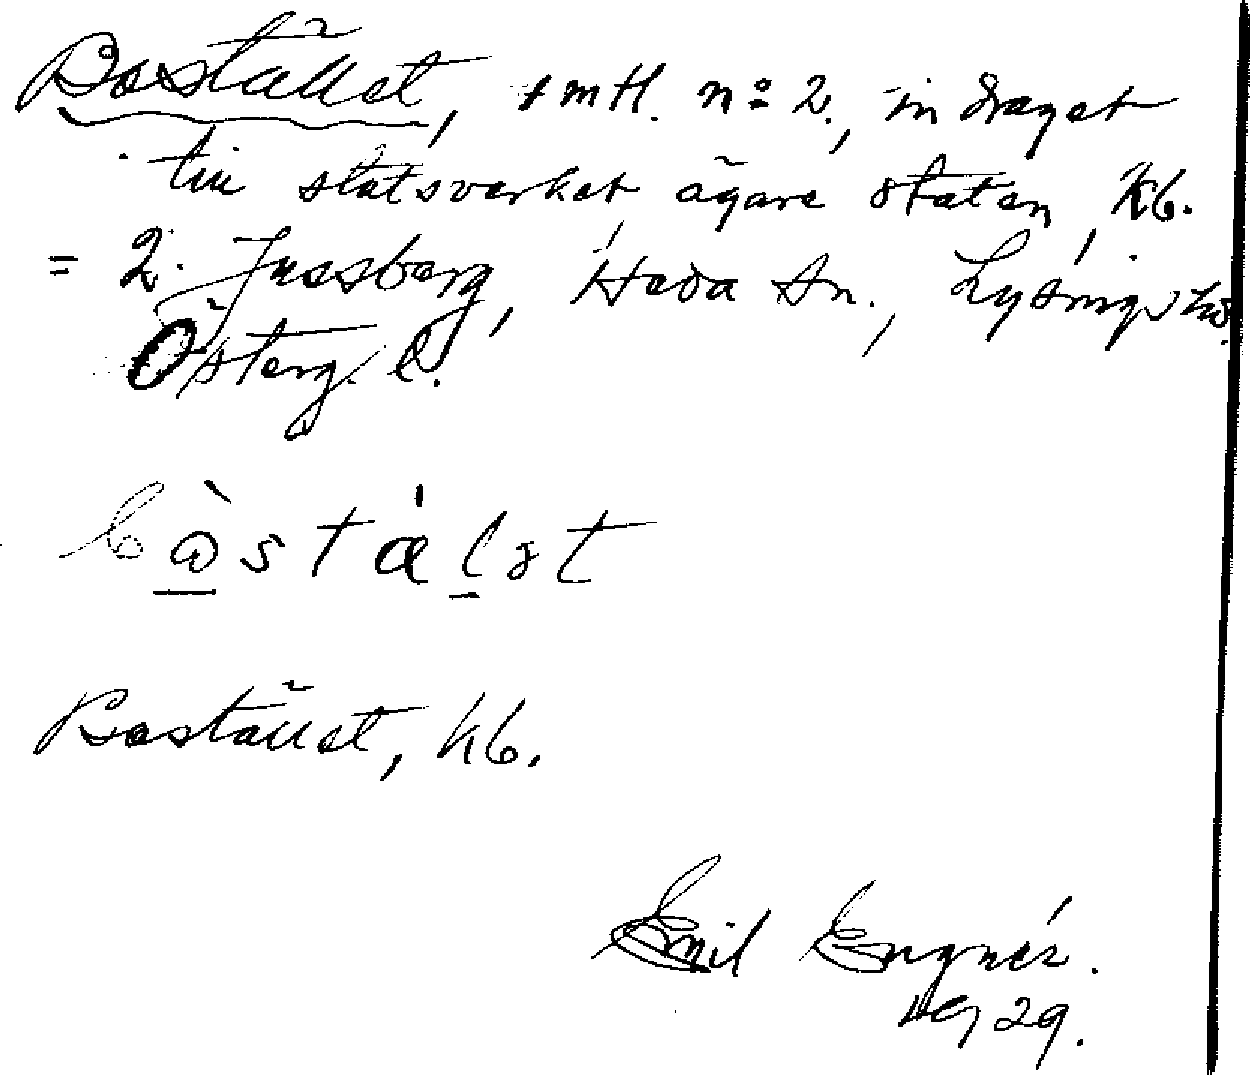 Bostället, 1 mtl. no 2, indraget
till statsverket ägare staten, Kb.
= 2. Jussberg, Heda sn., Lysings hd.
Österg. l.
bòstálət
Bostället, kb.
Emil Engnér.
1929.